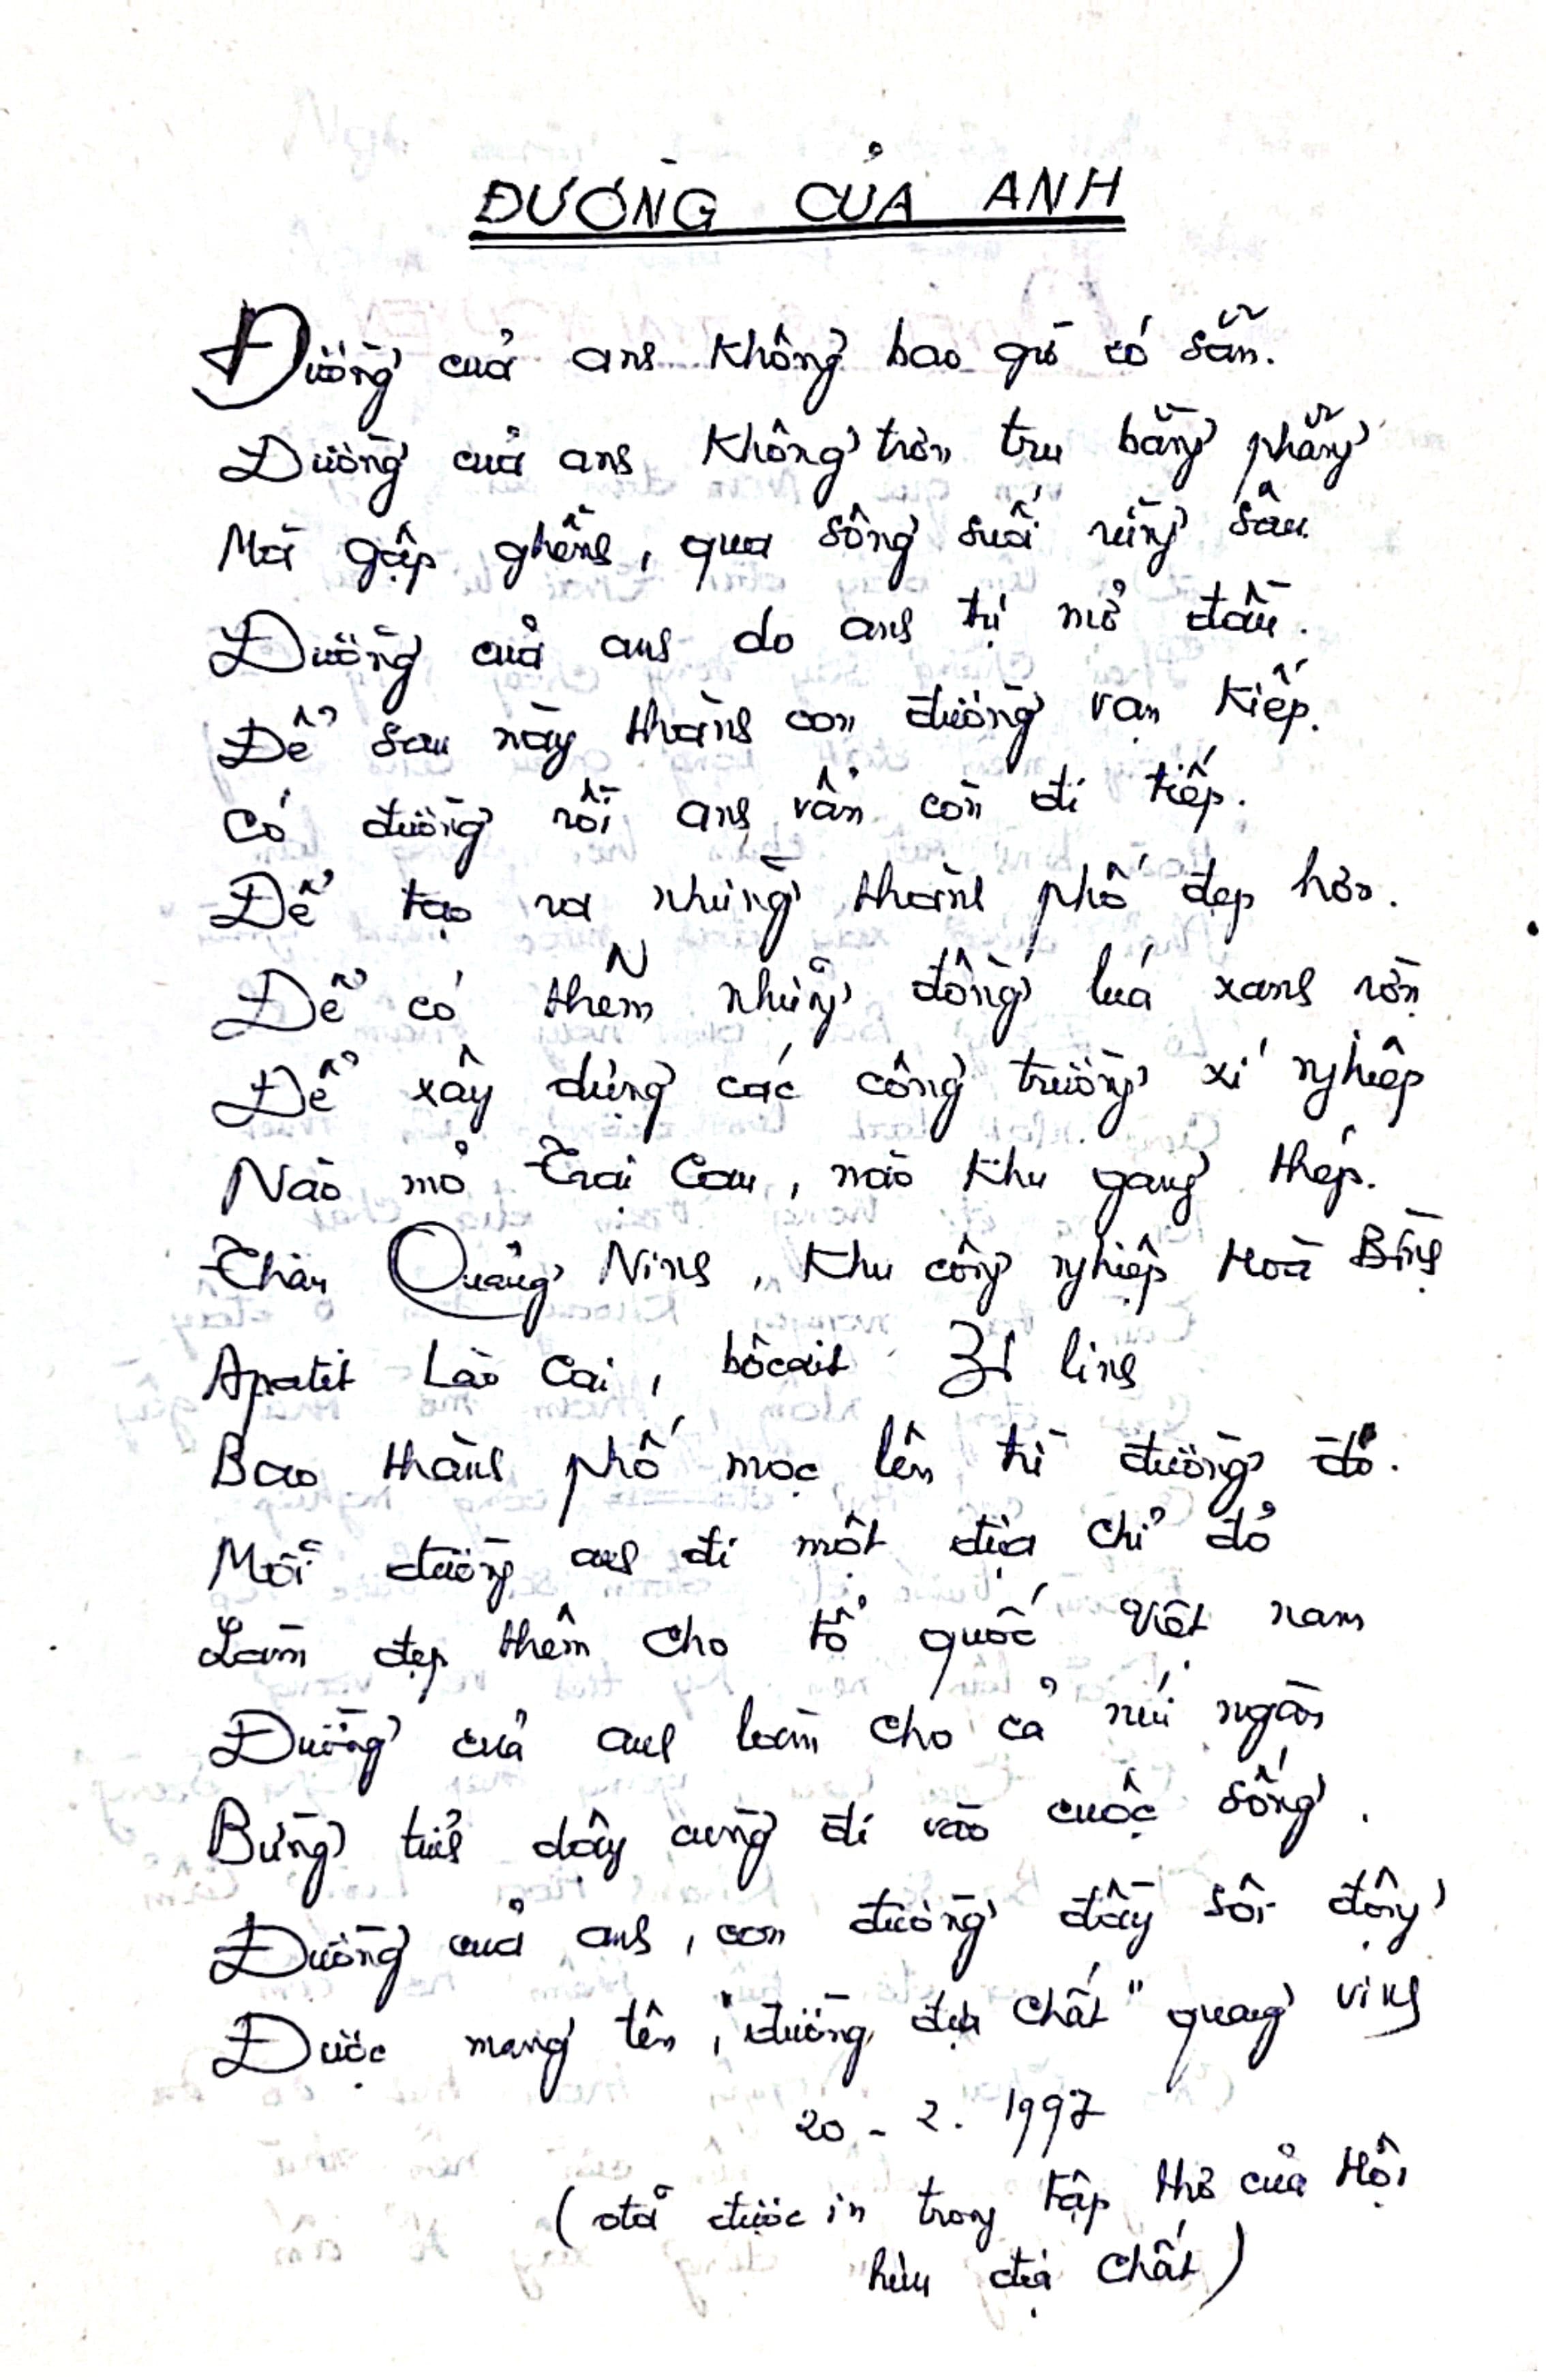 ĐƯỜNG CỦA ANH
Đường của anh không bao giờ có sẵn.
Đường của anh không trơn tru bằng phẳng
Mà gập ghềnh, qua sông suối rừng sâu
Đường của anh do anh tự mở đầu.
Để sau này thành con đường vạn kiếp.
Có đường rồi anh vẫn còn đi tiếp.
Để tạo ra những thành phố đẹp hơn.
Để có thêm những đồng lúa xanh rờn
Để xây dựng các công trường xí nghiệp
Nào mỏ Trại Cau, nào khu gang thép.
Than Quảng Ninh, khu công nghiệp Hoà Bình
Apatit Lào Cai, bôcxit linh
Bao thành phố mọc lên từ đường đó.
Mỗi đường anh đi một địa chỉ đỏ
Làm đẹp thêm cho tổ quốc Việt nam
Đường của anh làm cho cả núi ngàn
Bừng tỉnh dậy cùng đi vào cuộc sống.
Đường của anh, con đường đầy sôi động
Được mang tên, "đường địa chất" quang vinh
20 - 2. 1997
(đã được in trong tập thơ của Hội
hữu địa chất)